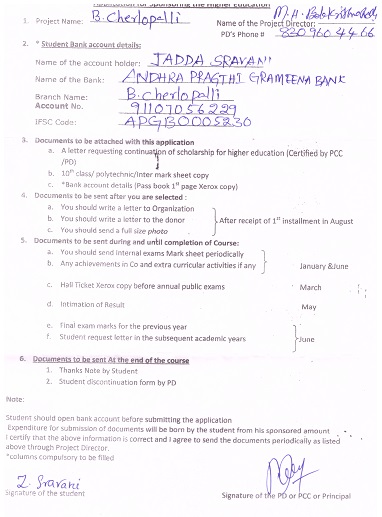 Application for Sponsoring the Higher Education
1. Project Name: B. Cherlopalli Name of the Project Director: M.H. Balakrishna Reddy
PD's Phone # 830 960 44 66
2. * Student Bank account details:
Name of the account holder: JADDA SRAVANI
Name of the Bank: ANDHRA PRAGTHI GRAMEENA BANK
Branch Name: B. cherlopalli
Account No. 91107056229
IFSC Code: APGB0005230
3. Documents to be attached with this application
a. A letter requesting continuation of scholarship for higher education (Certified by PCC
/PD)
b. 10th class/ polytechnic/inter mark sheet copy
c. *Bank account details (Pass book 1st page Xerox copy)
4. Documents to be sent after you are selected :
a. You should write a letter to Organization
b. You should write a letter to the donor After receipt of 1st installment in August
c. You should send a full size photo
5. Documents to be sent during and until completion of Course:
a. You should send internal exams Mark sheet periodically
b. Any achievements in Co and extra curricular activities if any January &June
c. Hall Ticket Xerox copy before annual public exams March
d. Intimation of Result May
e. Final exam marks for the previous year
f. Student request letter in the subsequent academic years June
6. Documents to be sent At the end of the course
1. Thanks Note by Student
2. Student discontinuation form by PD
Note:
Student should open bank account before submitting the application
Expenditure for submission of documents will be born by the student from his sponsored amount
I certify that the above information is correct and I agree to send the documents periodically as listed
above through Project Director.
*columns compulsory to be filled
J. Sravani
Signature of the student Signature of the PD or PCC or Principal